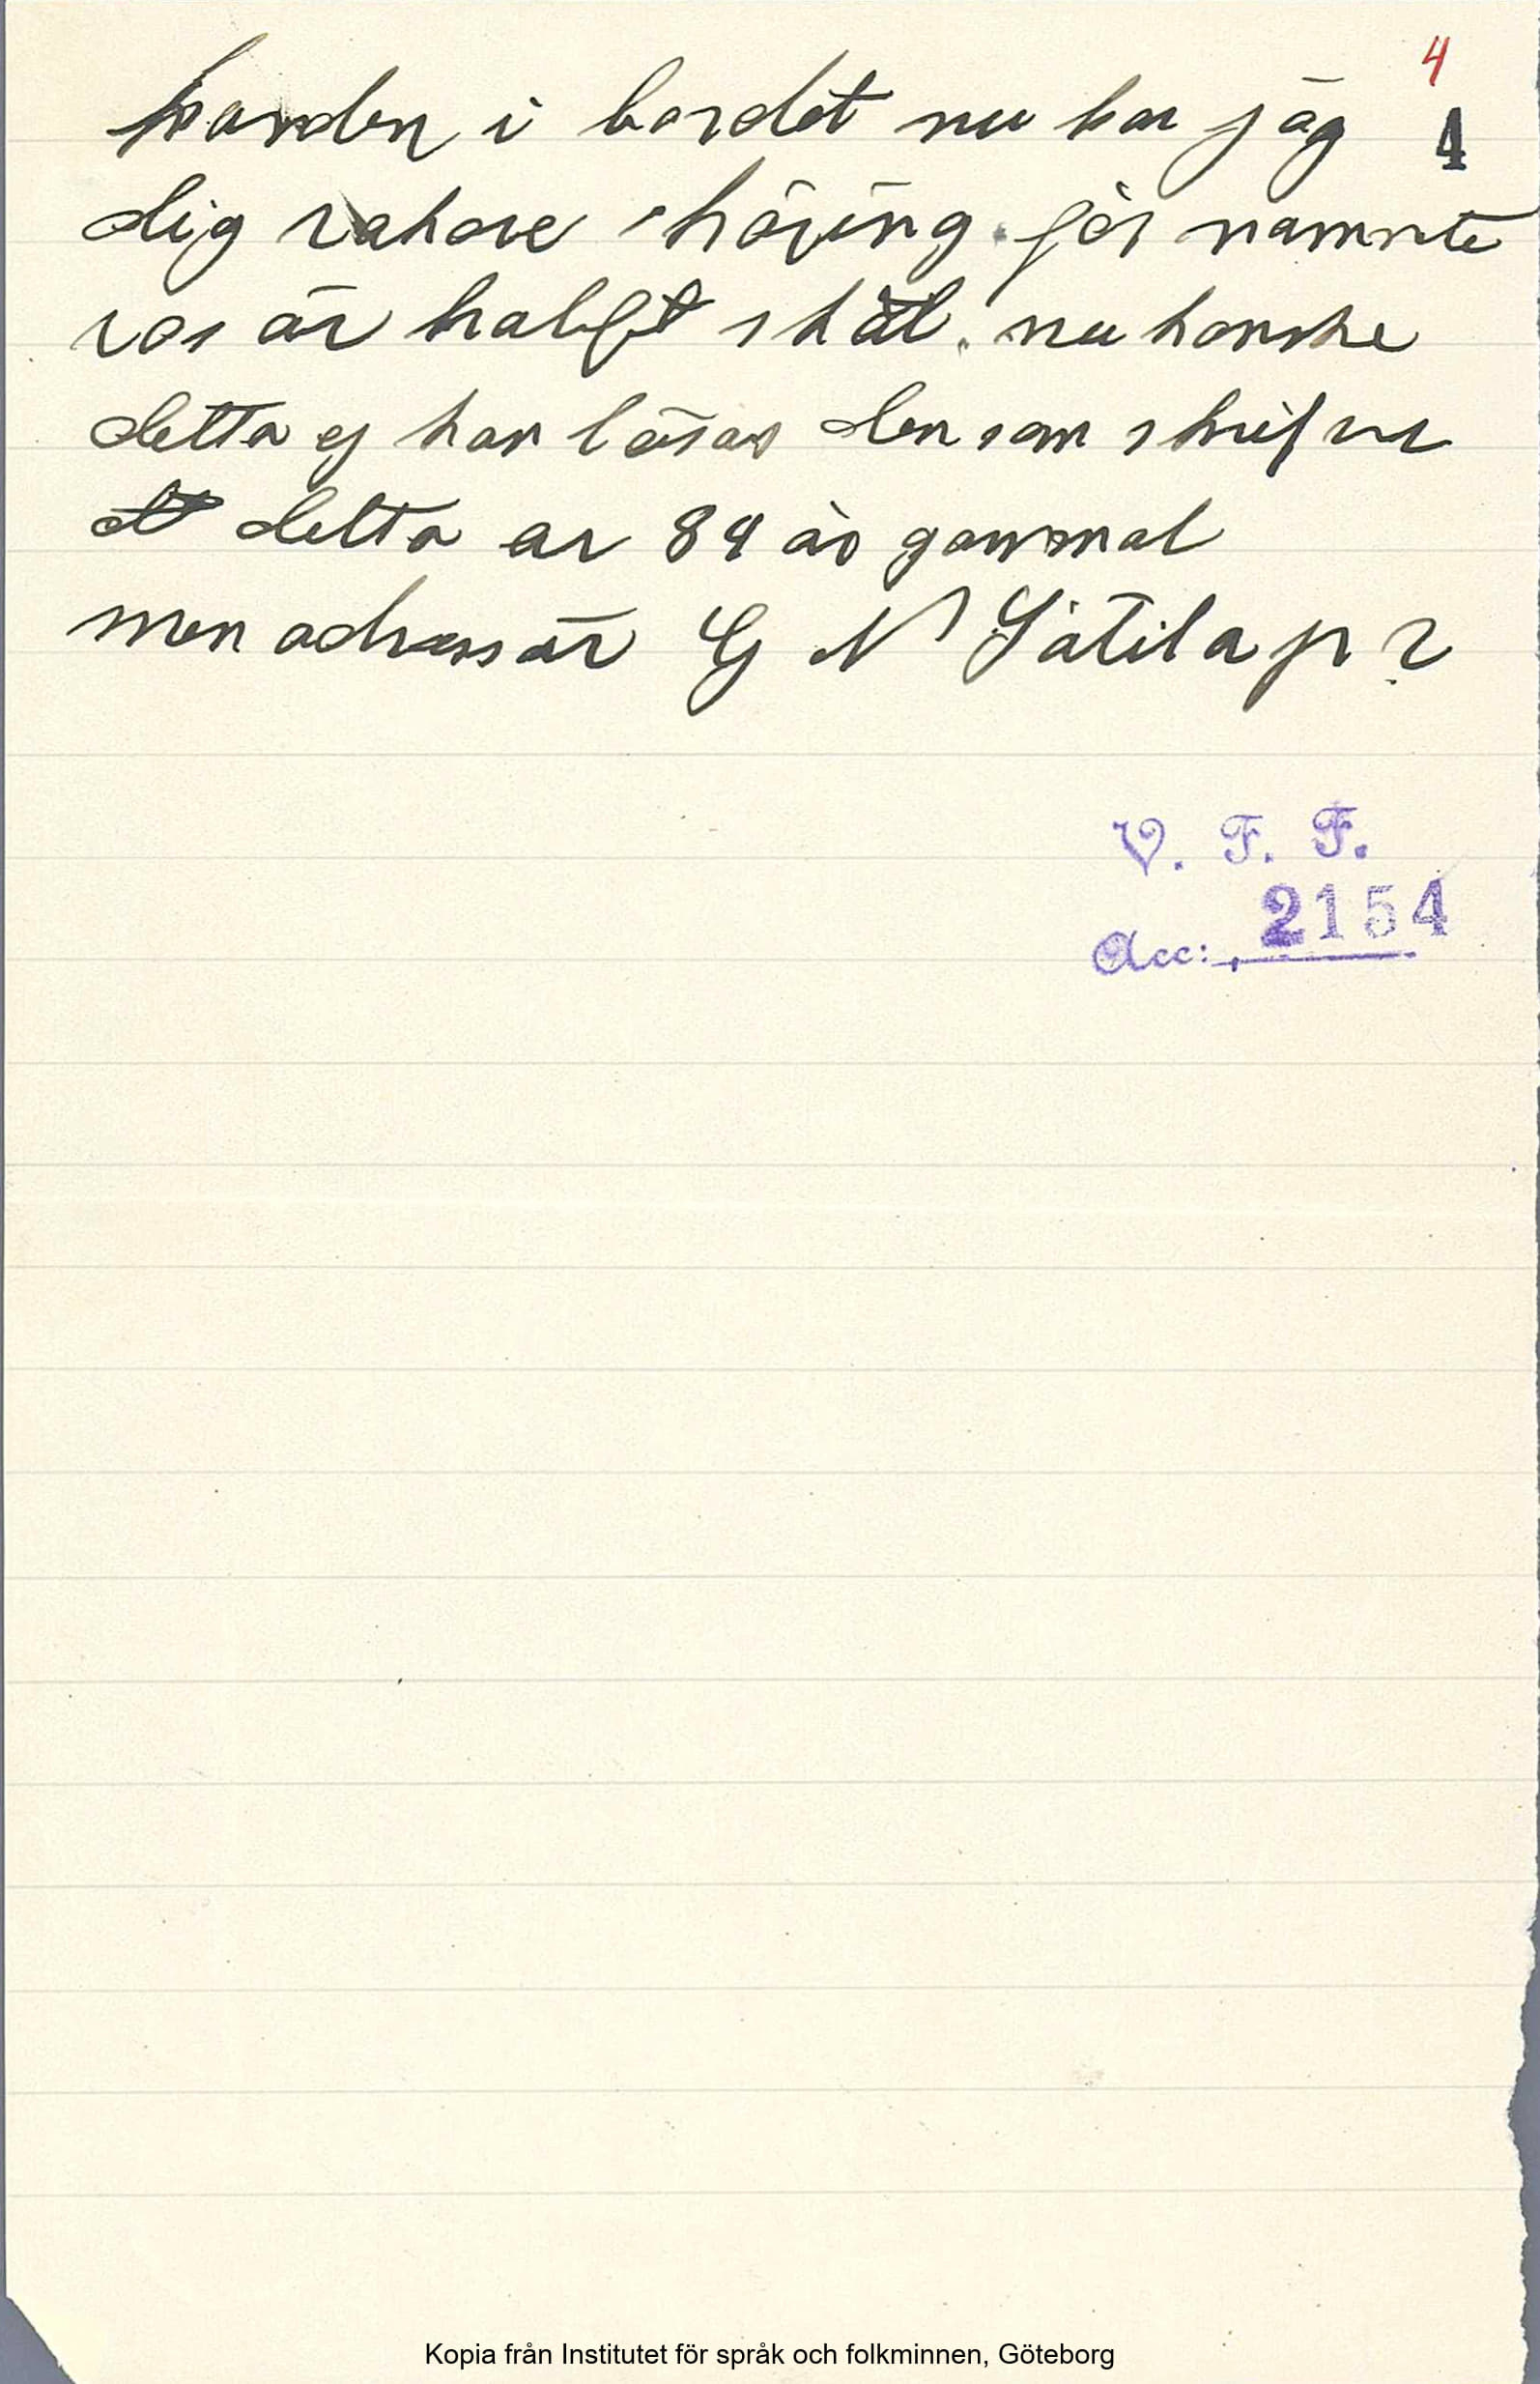 4
handen i bordet nu har jag 4
dig rakare skäring för namnte
ros är halft skäl. nu kanske
detta ej kan läsas den som skrifver
detta ar 84 år gammal
men adress är G N Sätila pr
V. F. F.
Acc: 2154
Kopia från Institutet för språk och folkminnen, Göteborg